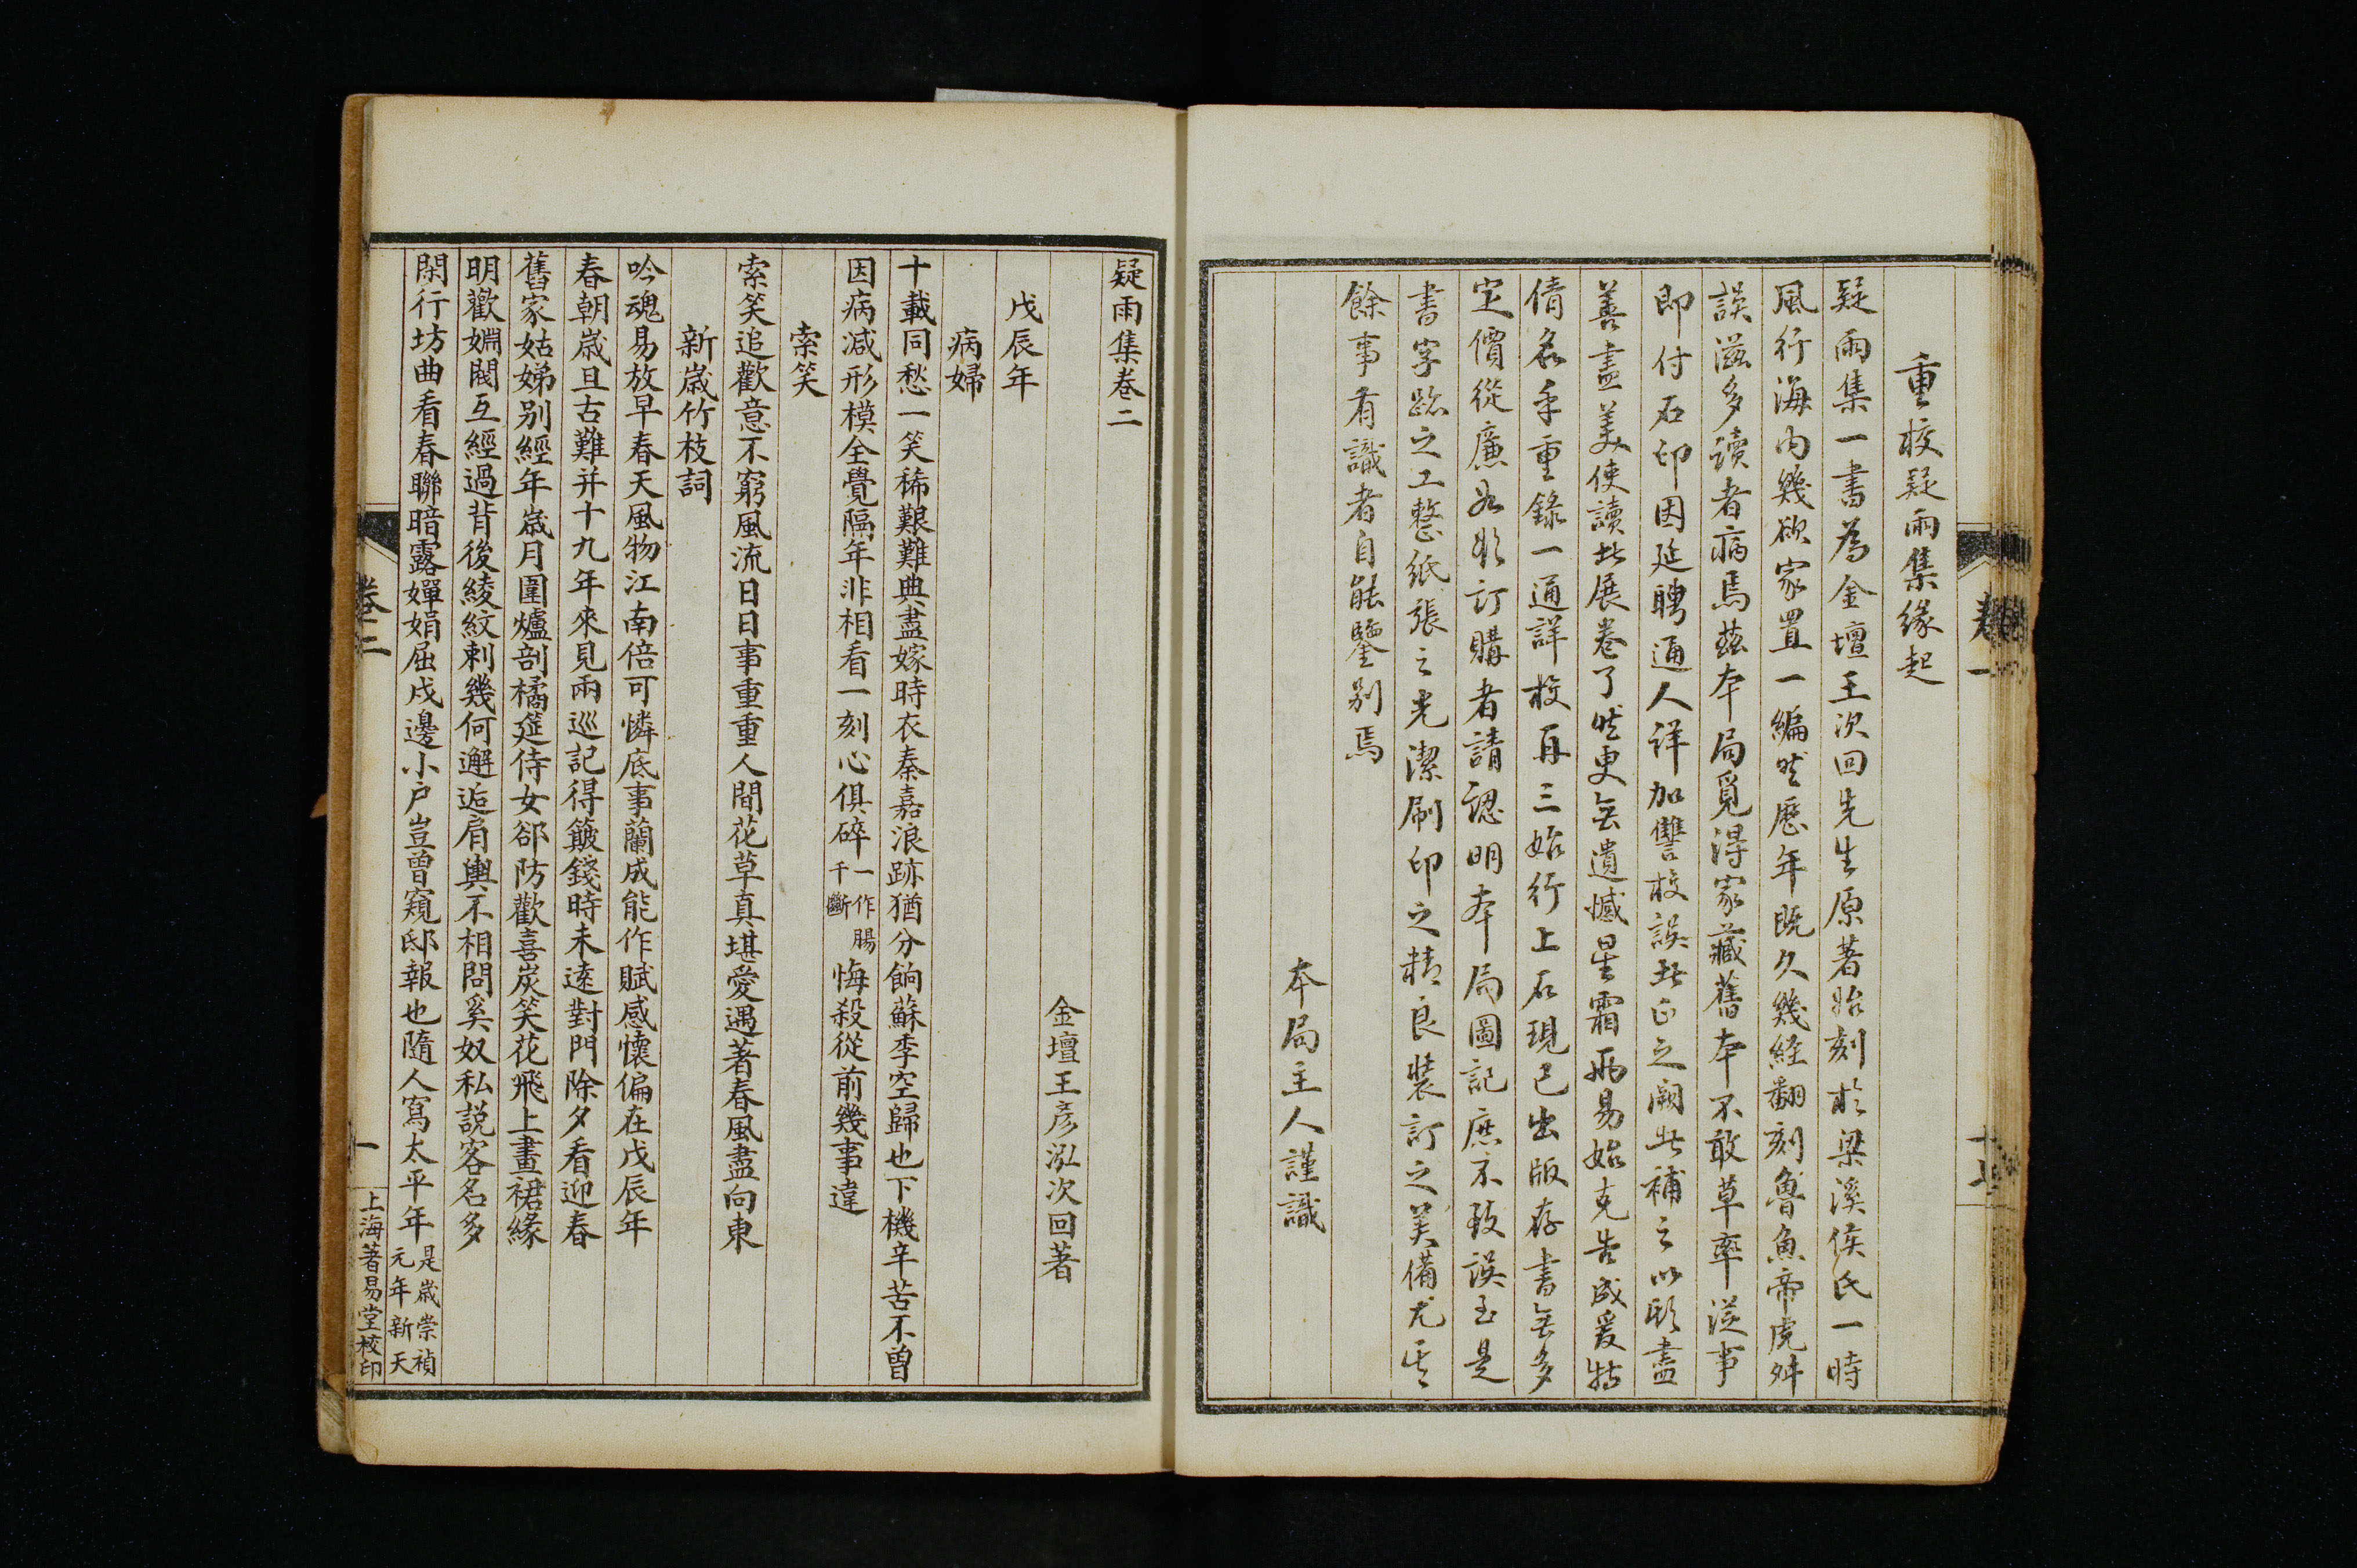 重校疑雨集緣起
疑雨集一書為金壇王次回先生原著始刻於梁溪侯氏一時
風行海內幾欲家置一編然歷年既久幾經翻刻魯魚帝虎舛
誤滋多讀者病焉茲本局覓得家藏舊本不敢草率從事
即付石印因延聘通人詳加讐校誤者正之闕者補之以期盡
善盡美使讀者展卷了然更無遺憾星霜兩易始克告成爰特
倩名手重錄一通詳校再三始行上石現已出版存書無多
定價從廉如欲訂購者請認明本局圖記庶不致誤至是
書字跡之工整紙張之光潔刷印之精良裝訂之美備尤其
餘事有識者自能鑒別焉
本局主人謹識
卷一
疑雨集卷二
金壇王彥泓次回著
戊辰年
病婦
十載同愁一笑稀艱難典盡嫁時衣秦嘉浪跡猶分餉蘇季空歸也下機辛苦不曾
因病減形模全覺隔年非相看一刻心俱碎一作腸千斷悔殺從前幾事違
索笑
索笑追歡意不窮風流日日事重重人間花草真堪愛遇著春風盡向東
新歲竹枝詞
吟魂易放早春天風物江南倍可憐底事蘭成能作賦感懷偏在戊辰年
春朝歲旦古難并十九年來見兩巡記得簸錢時未遠對門除夕看迎春
舊家姑娣別經年歲月圍爐剖橘筵侍女郤防歡喜炭笑花飛上畫裙緣
明歡嫺閥互經過背後綾紋刺幾何邂逅肩輿不相問奚奴私説客名多
閑行坊曲看春聯暗露嬋娟屈戍邊小戶豈曾窺邸報也隨人寫太平年是歲崇禎元年新天
卷二
一
上海著易堂校印